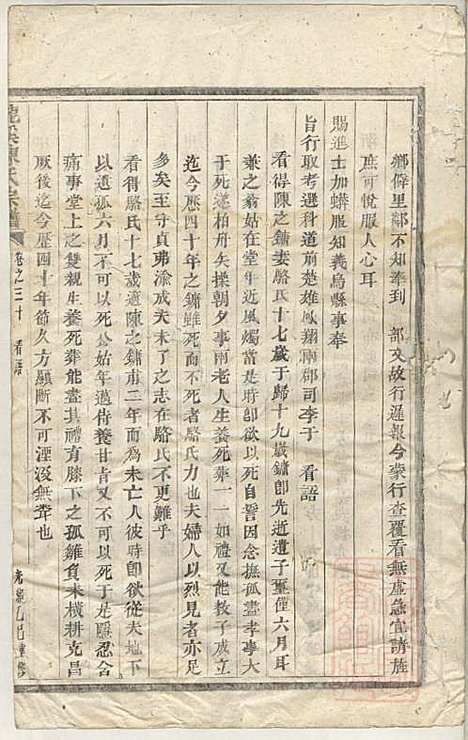 鄉僻里鄰不知奉到　部文故行遲報今蒙行查覆看無虛急宜請旌
庶可悅服人心耳
賜進士加蟒服知義烏縣事奉
旨行取考選科道前楚雄鳳翔兩郡司李于　看語
看得陳之鏞妻駱氏十七歲于歸十九歲鏞卽先逝遺子璽僅六月耳
兼之翁姑在堂年近風燭當是時卽欲以死自誓因念撫孤盡孝事大
于死遂柏舟矢操朝夕事兩老人生養死葬一一如禮又能教子成立
迄今歷四十年之鏞雖死而不死者駱氏力也夫婦人以烈見者亦足
多矣王守貞弗渝成夫未了之志在駱氏不更難乎
看得駱氏十七歲適陳之鏞甫二年而為未亡人彼時卽欲從夫地下
以遺孤六月不可以死公姑年邁侍養甘旨又不可以死于是隱忍含
痛事堂上之雙親生養死葬能盡其禮育膝下之孤雛負未橫耕克昌
厥後迄今歷四十年節久方顯斷不可湮沒無聞也
卷之三十　看語
光緒乙巳重修